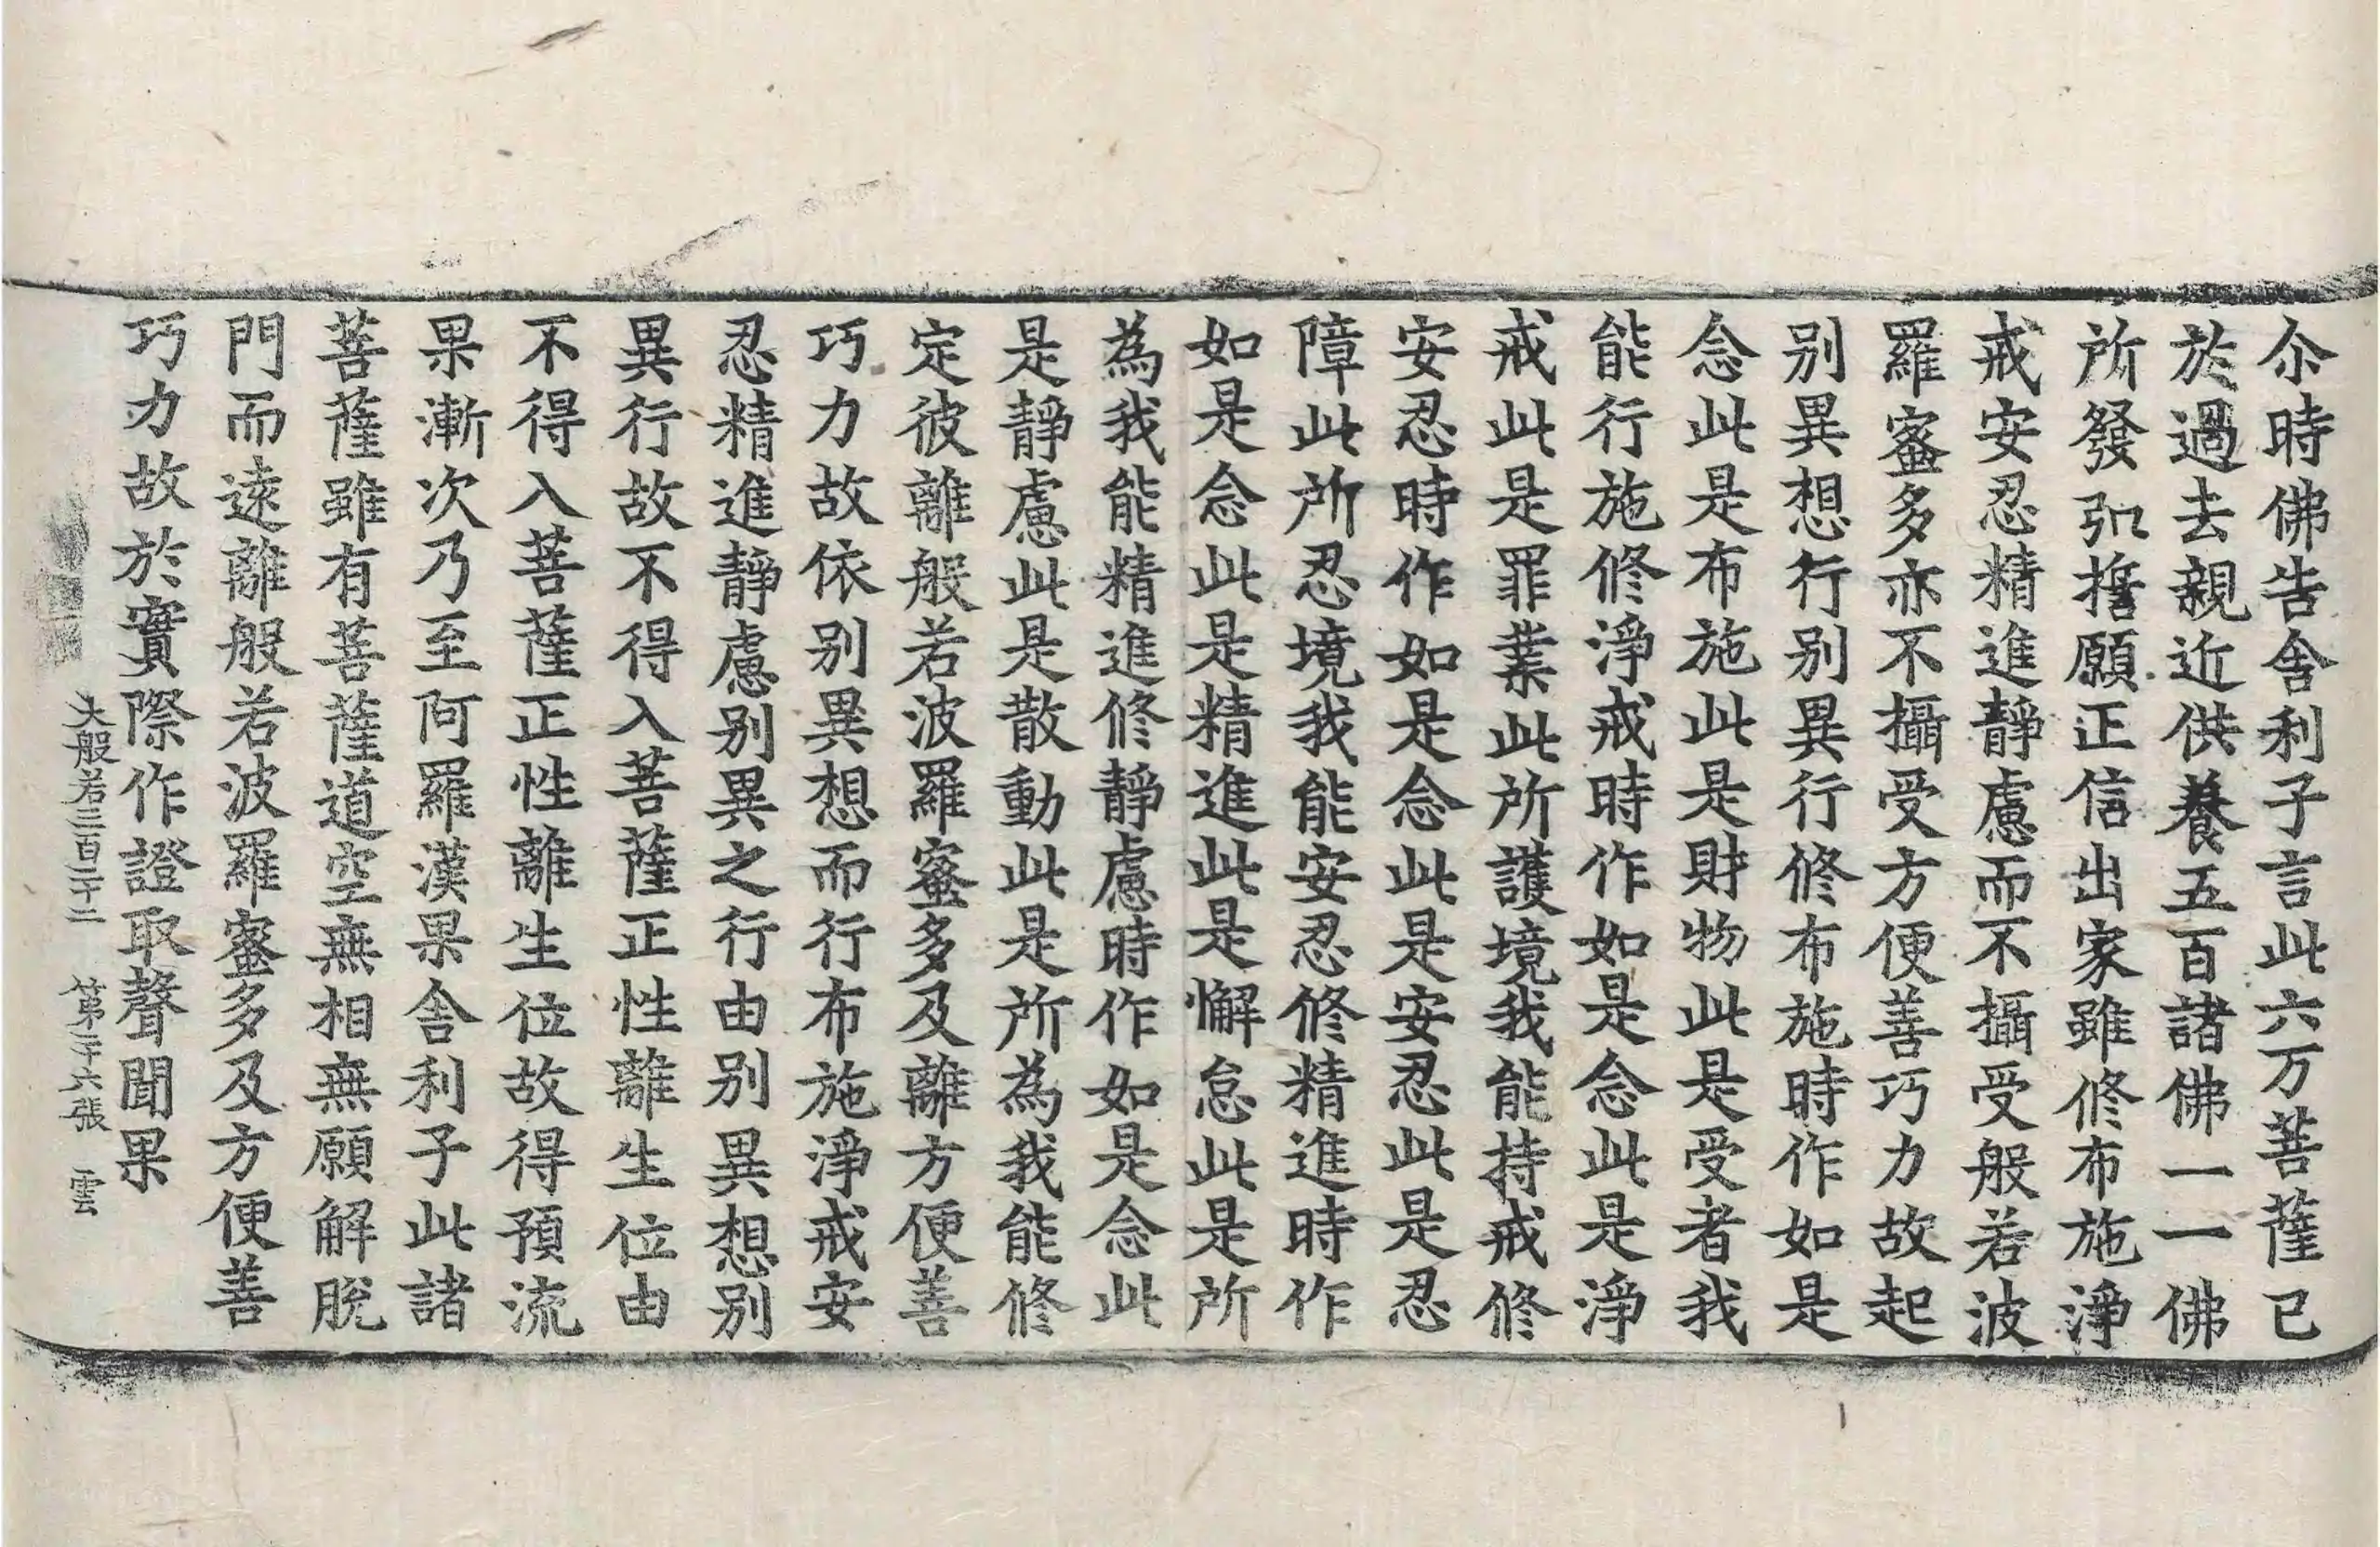 尒時佛告舍利子言此六万菩薩已
於過去親近供養五百諸佛一一佛
所發弘誓願正信出家雖修布施淨
戒安忍精進靜慮而不攝受般若波
羅蜜多亦不攝受方便善巧力故起
別異想行別異行修布施時作如是
念此是布施此是財物此是受者我
能行施修淨戒時作如是念此是淨
戒此是罪業此所護境我能持戒修
安忍時作如是念此是安忍此是忍
障此所忍境我能安忍修精進時作
如是念此是精進此是懈怠此是所
為我能精進修靜慮時作如是念此
是靜慮此是散動此是所為我能修
定彼離般若波羅蜜多及離方便善
巧力故依別異想而行布施淨戒安
忍精進靜慮別異之行由別異想別
異行故不得入菩薩正性離生位由
不得入菩薩正性離生位故得預流
果漸次乃至阿羅漢果舍利子此諸
菩薩雖有菩薩道空無相無願解脫
門而遠離般若波羅蜜多及方便善
巧力故於實際作證取聲聞果
大般若三百二十二　第二十六張　雲